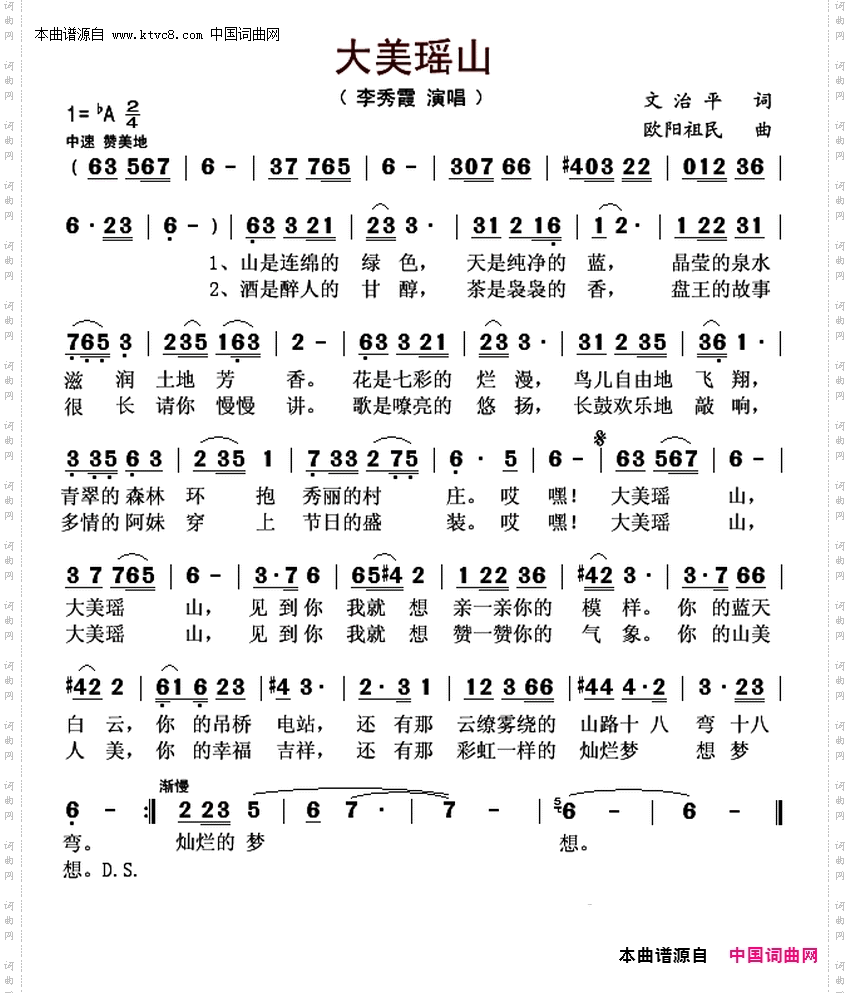 本曲谱源自 www.ktvc8.com 中国词曲网
大美瑶山
( 李秀霞 演唱 )
1= ♭A 2/4
文 治 平 词
中速 赞美地
欧阳祖民 曲
( 63 567 | 6 - | 37 765 | 6 - | 307 66 | #403 22 | 012 36 |
6 · 23 | 6 - ) | 63 3 21 | 23 3 · | 31 2 16 | 1 2 · | 1 22 31 |
1、山是连绵的 绿 色， 天是纯净的 蓝， 晶莹的泉水
2、酒是醉人的 甘 醇， 茶是袅袅的 香， 盘王的故事
765 3 | 235 163 | 2 - | 63 3 21 | 23 3 · | 31 2 35 | 36 1 · |
滋 润 土地 芳 香。 花是七彩的 烂 漫， 鸟儿自由地 飞 翔，
很 长 请你 慢慢 讲。 歌是嘹亮的 悠 扬， 长鼓欢乐地 敲 响，
3 35 6 3 | 2 35 1 | 7 33 2 75 | 6 · 5 | 6 - | 63 567 | 6 - |
青翠的 森林 环 抱 秀丽的村 庄。 哎 嘿！ 大美瑶 山，
多情的 阿妹 穿 上 节日的盛 装。 哎 嘿！ 大美瑶 山，
3 7 765 | 6 - | 3·7 6 | 65#4 2 | 1 22 36 | #42 3 · | 3·7 66 |
大美瑶 山， 见 到你 我就 想 亲一亲你的 模 样。 你 的蓝天
大美瑶 山， 见 到你 我就 想 赞一赞你的 气 象。 你 的山美
#42 2 | 61 6 23 | #4 3 · | 2·3 1 | 12 3 66 | #44 4·2 | 3 · 23 |
白 云， 你 的吊桥 电站， 还 有那 云缭雾绕的 山路十 八 弯 十八
人 美， 你 的幸福 吉祥， 还 有那 彩虹一样的 灿烂梦 想 梦
渐慢
6 - :‖ 2 23 5 | 6 7 · | 7 - | 5 6 - | 6 - ‖
弯。 灿烂的 梦 想。
想。D.S.
本曲谱源自 中国词曲网